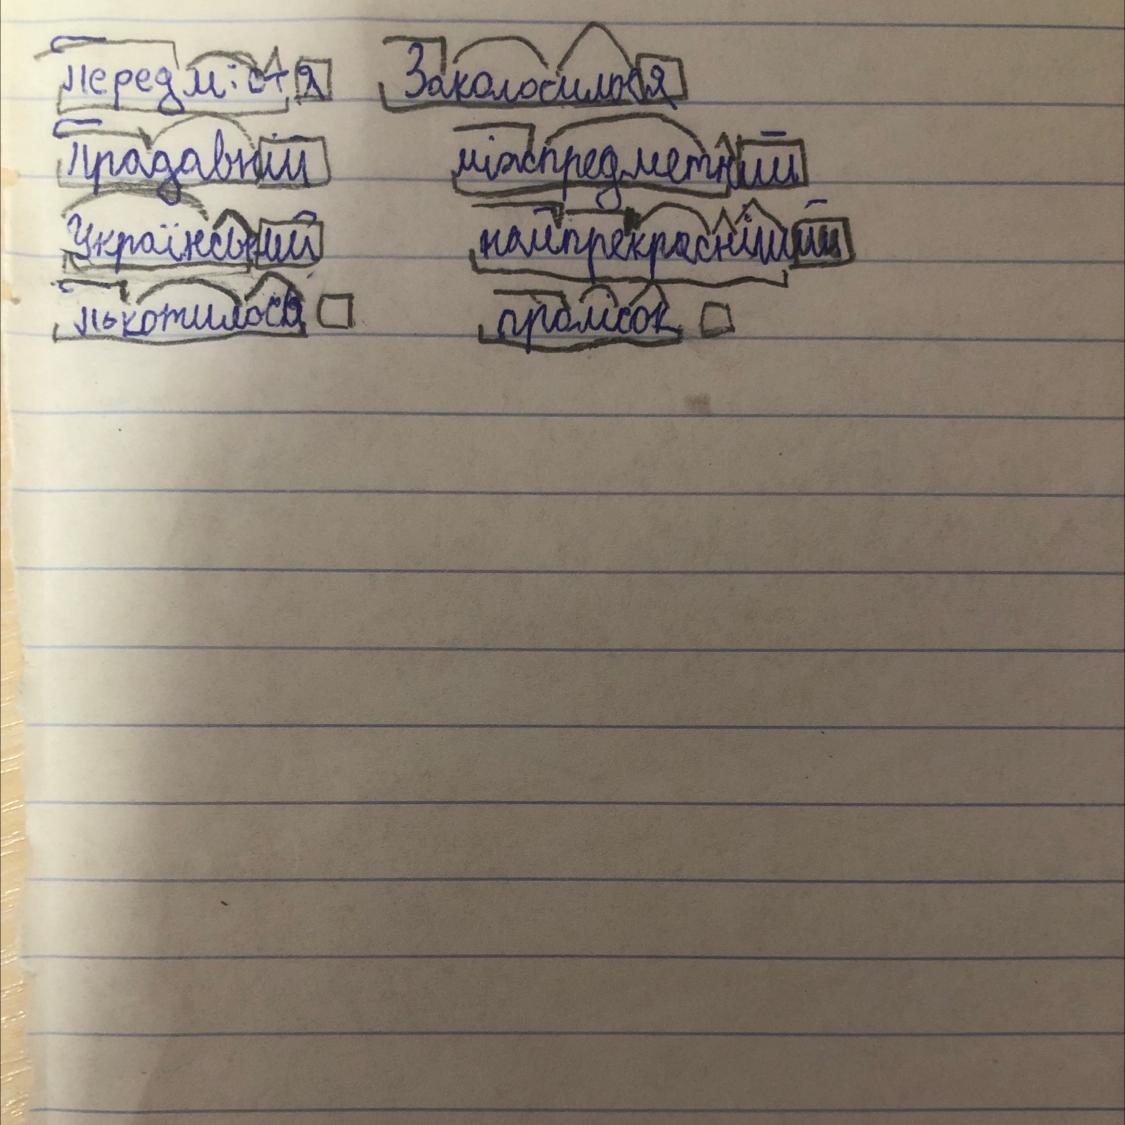 Передмістя Заколосилося
Прадавній міжпредметний
Український найпрекрасніший
котилося пролісок